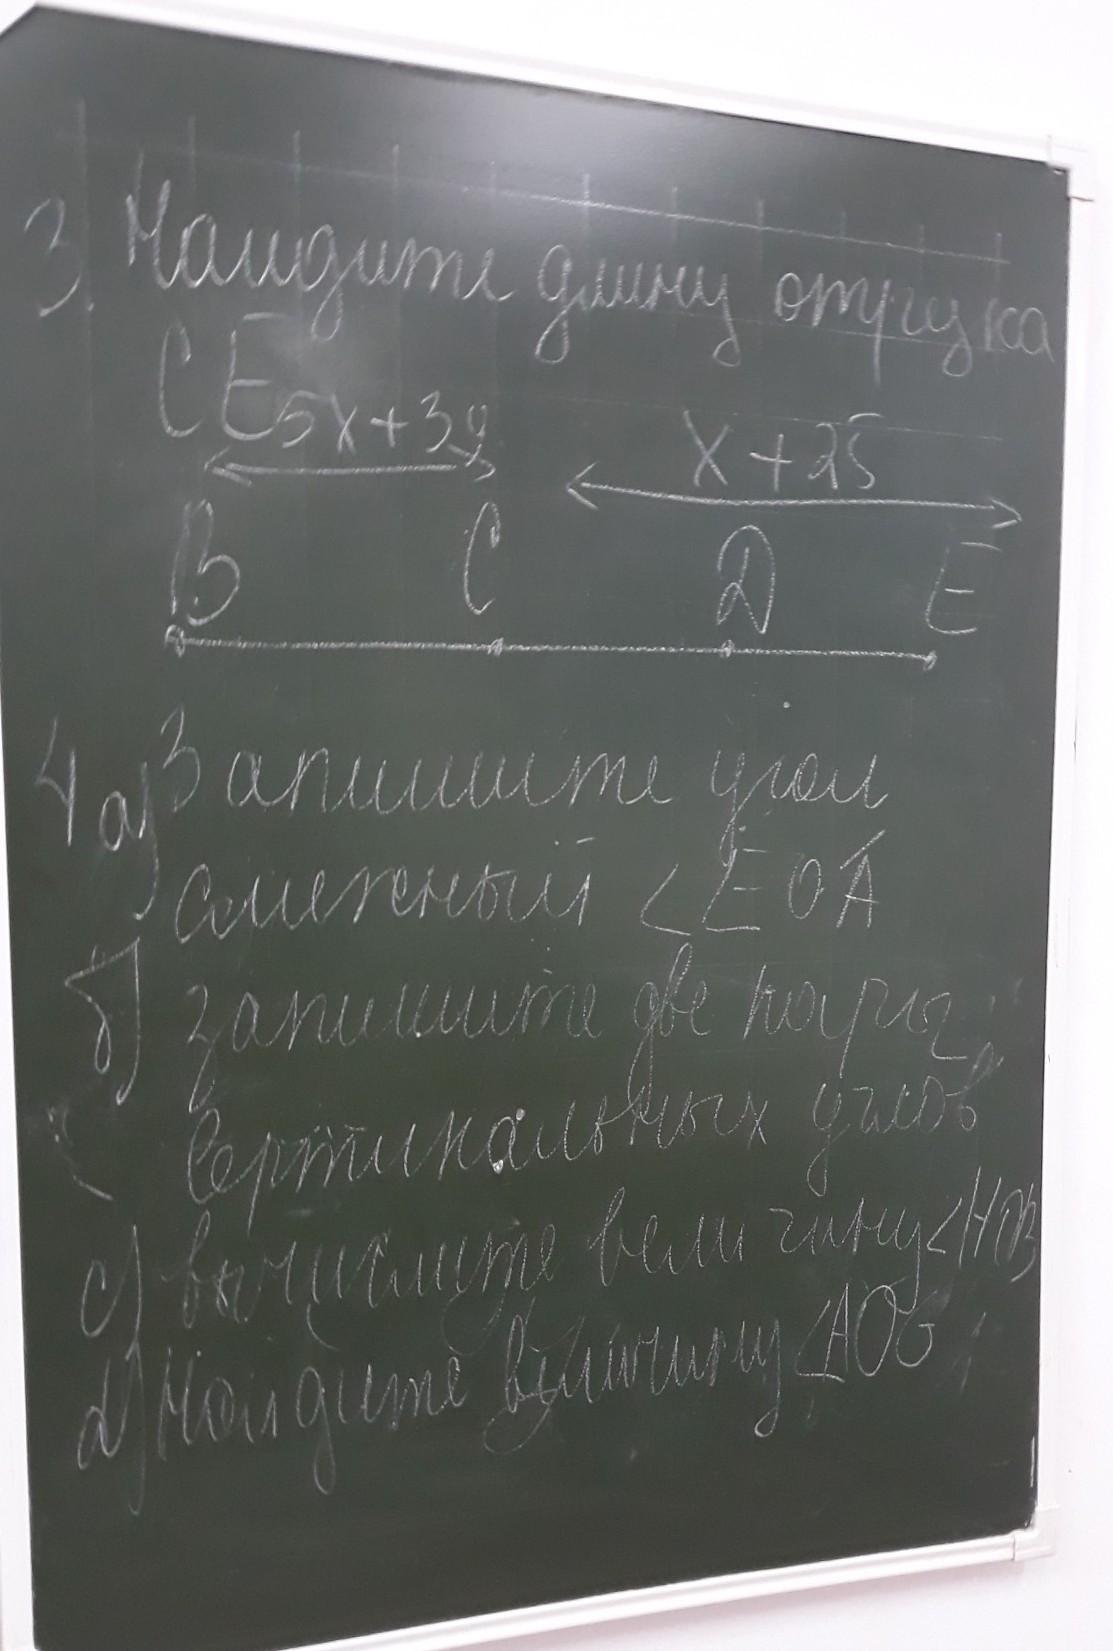 3. Найдите длину отрезка
CE
5x+39
x+25
B C D E
4 а) Запишите угол
смежный <EOA
б) запишите две пары
вертикальных углов
c) вычислите величину <HOB
d) Найдите величину <AOG